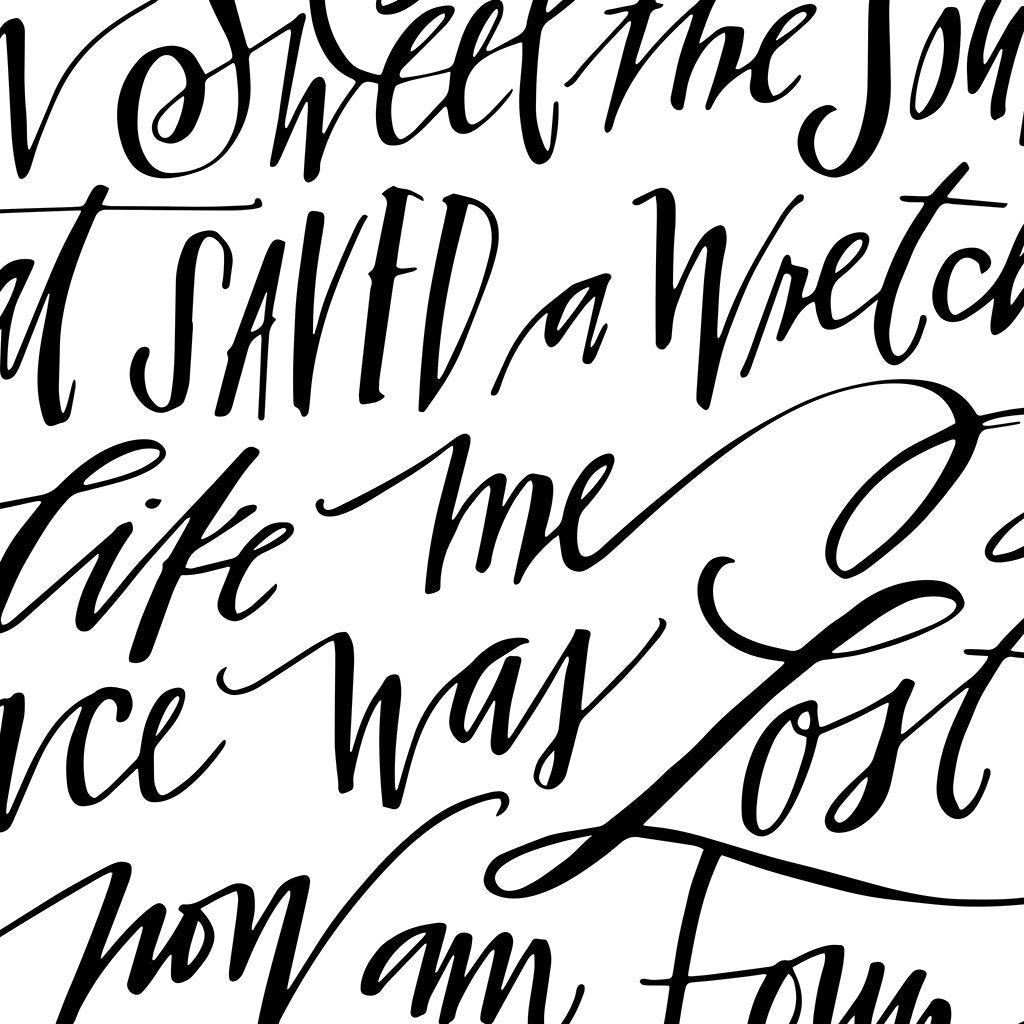 w Sweet the Sou
at SAVED a Wretch
like me
nce was Lost
now am Foun